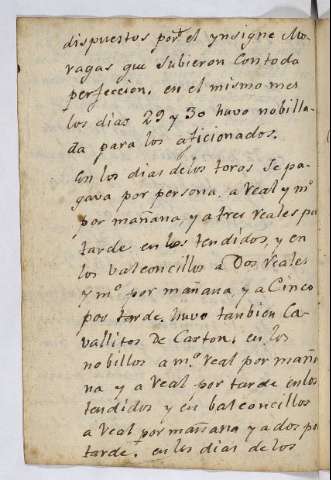 dispuestos por el ynsigne Mo-
ragas que subieron con toda
perfeccion, en el mismo mes
los dias 29 y 30 huvo nobilla-
da para los aficionados.
En los dias de los toros se pa-
gava por persona, a real y mº
por mañana, y a tres reales por
tarde en los tendidos, y en
los valconcillos a Dos reales
y mº por mañana y a Cinco
por tarde, huvo tanbien Ca-
vallitos de Carton, en los
nobillos a mº real por maña-
na y a real por tarde en los
tendidos y en balconcillos
a real por mañana y a dos por
tarde, en los dias de los